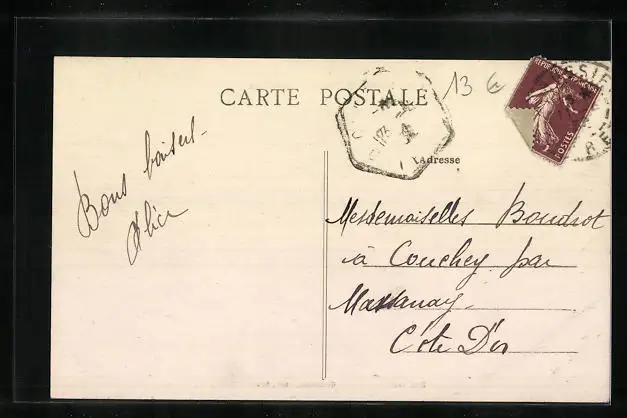 CARTE POSTALE
13 €
Adresse
POSTES
Bons baisers
Alice
Mesdemoiselles Boudrot
à Couchey par
Marsannay
Côte D'Or